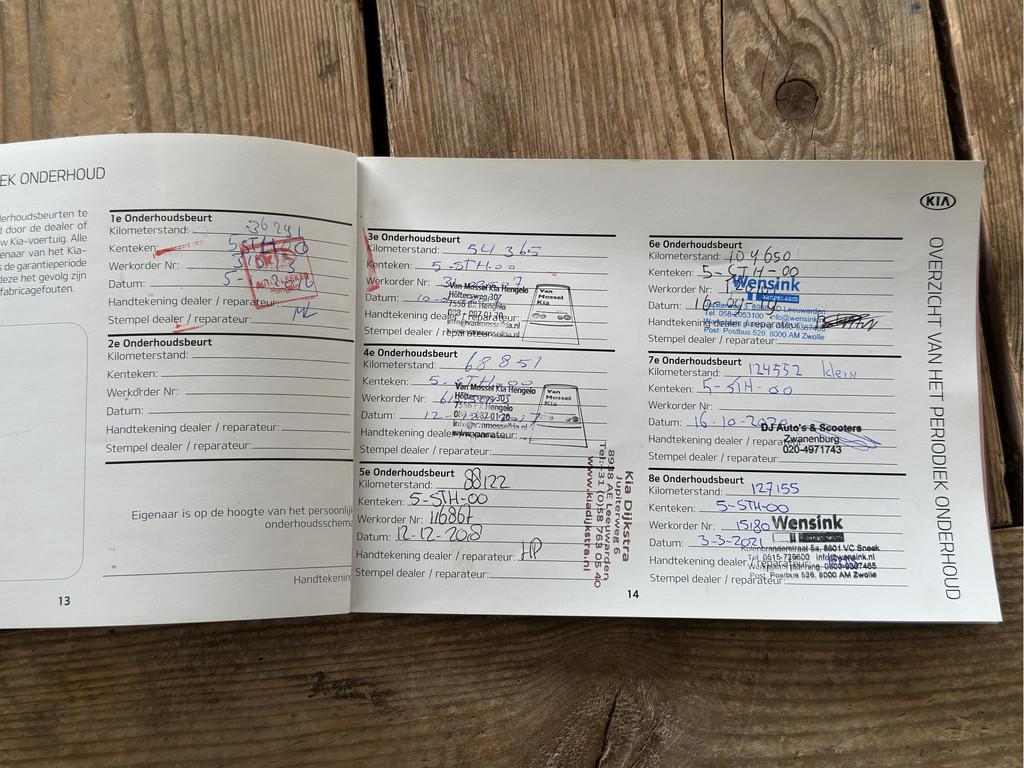 EK ONDERHOUD
derhoudsbeurten te
d door de dealer of
w Kia-voertuig. Alle
enaar van het Kia-
s de garantieperiode
deze het gevolg zijn
fabricagefouten.
1e Onderhoudsbeurt
Kilometerstand: 36291
Kenteken: 5-STH-00
Werkorder Nr:
Datum:
Handtekening dealer / reparateur:
Stempel dealer / reparateur:
2e Onderhoudsbeurt
Kilometerstand:
Kenteken:
Werkorder Nr:
Datum:
Handtekening dealer / reparateur:
Stempel dealer / reparateur:
Eigenaar is op de hoogte van het persoonlij
onderhoudsschema
Handtekening
13
3e Onderhoudsbeurt
Kilometerstand: 54365
Kenteken: 5-STH-00
Werkorder Nr:
Datum:
Handtekening dealer / reparateur:
Stempel dealer / reparateur:
Van Mossel Kia Hengelo
Höltersweg 307
Van
Mossel
Kia
4e Onderhoudsbeurt
Kilometerstand: 68851
Kenteken: 5-STH-00
Werkorder Nr:
Datum:
Handtekening dealer / reparateur:
Stempel dealer / reparateur:
Van Mossel Kia Hengelo
Van
Mossel
Kia
5e Onderhoudsbeurt
Kilometerstand: 88122
Kenteken: 5-STH-00
Werkorder Nr: 116867
Datum: 12-12-2018
Handtekening dealer / reparateur: HP
Stempel dealer / reparateur:
Kia Dijkstra
Jupiterweg 6
8938 AE Leeuwarden
Tel:+31 (0)58 763 05 40
www.kiadijkstra.nl
14
6e Onderhoudsbeurt
Kilometerstand: 104650
Kenteken: 5-STH-00
Werkorder Nr:
Datum:
Handtekening dealer / reparateur:
Stempel dealer / reparateur:
Wensink
Post: Postbus 529, 8000 AM Zwolle
7e Onderhoudsbeurt
Kilometerstand: 124552 klein
Kenteken: 5-STH-00
Werkorder Nr:
Datum: 16-10-2020
Handtekening dealer / reparateur:
Stempel dealer / reparateur:
DJ Auto's & Scooters
Zwanenburg
020-4971743
8e Onderhoudsbeurt
Kilometerstand: 127155
Kenteken: 5-STH-00
Werkorder Nr: 15180
Datum: 3-3-2021
Handtekening dealer / reparateur:
Stempel dealer / reparateur:
Wensink
5a, 8601 VC Sneek
Tel. 0515-729600 info@wensink.nl
Post: Postbus 529, 8000 AM Zwolle
KIA
OVERZICHT VAN HET PERIODIEK ONDERHOUD